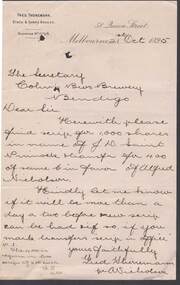 FRED. THONEMANN,
STOCK & SHARE BROKER
51 Queen Street,
Melbourne, Oct 1895
The Secretary
Cohn Bros Brewery
Bendigo
Dear Sir
Herewith please
find scrip for 1,000 shares
in name of J D
transfer for 400
of same in favor of Alfred
Nicholson.
Kindly let me know
if it will be more than a
day or two before new scrip
can be had if so if you
mark transfers scrip in office
yours faithfully
Fred Thonemann
A Nicholson